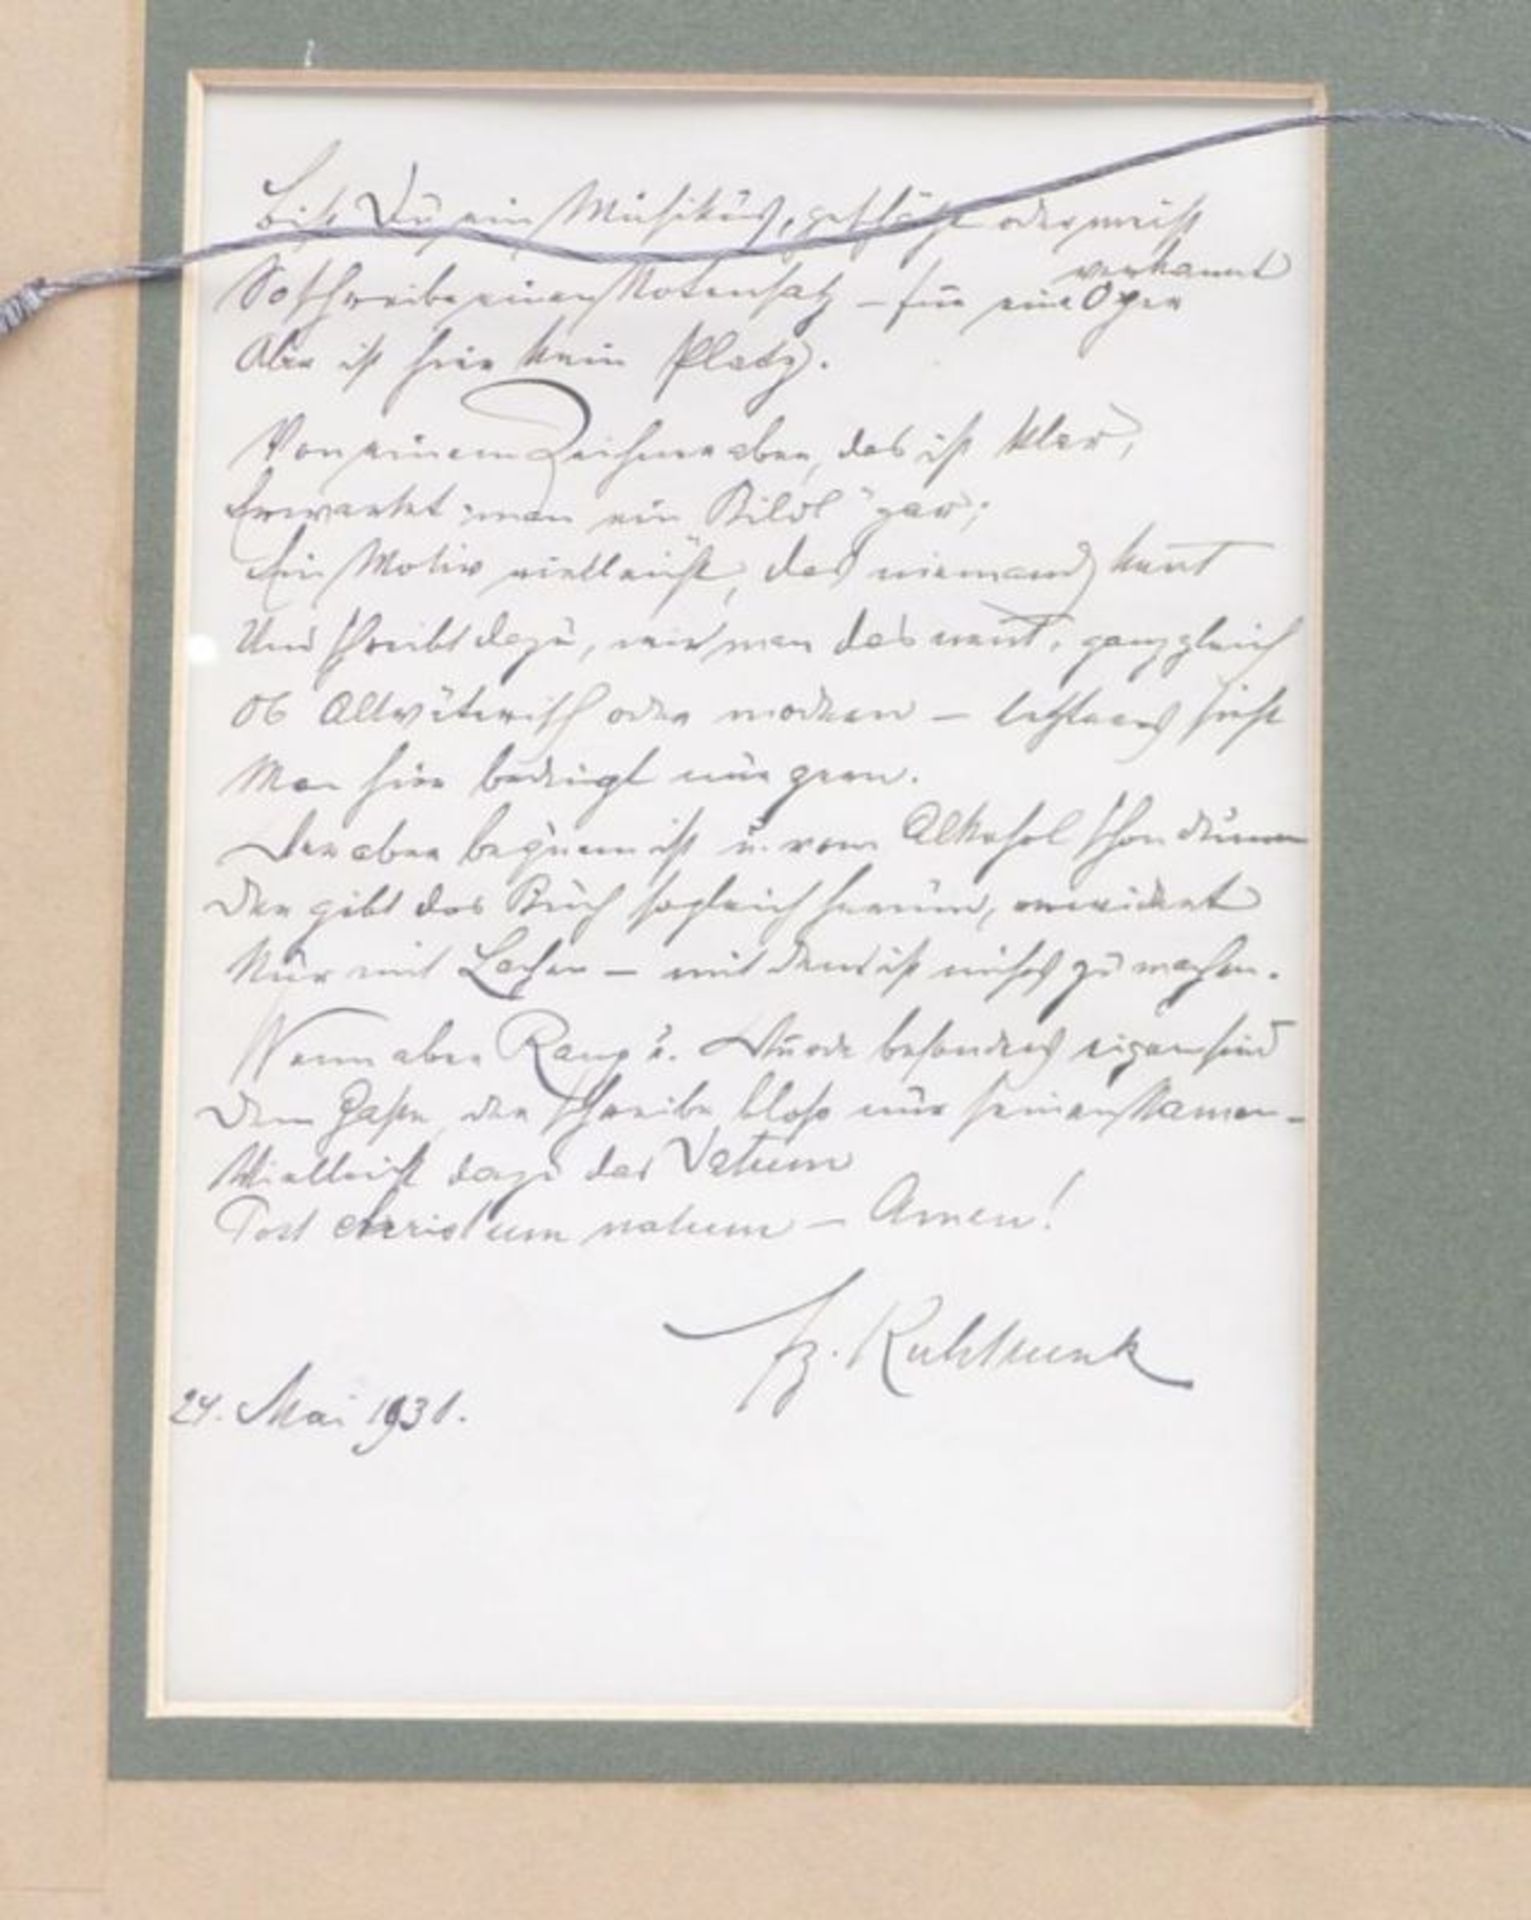 Bist Du ein Musikus, geschätzt oder meist
verkannt
So schreibe einen Notensatz – für eine Oper
Aber ist hier kein Platz.
Von einem Zeichner aber, das ist klar,
Erwartet man ein Bildl gar;
Ein Motiv vielleicht, das niemand kent
Und schreibt dazu, wie man das nent, ganz gleich
Ob Altväterisch oder modern – letzteres sieht
Man hier bedingt nur gern.
Der aber bequem ist u. vom Alkohol schon dumm
Der gibt das Buch sogleich herum, erwidert
Nur mit Lachen – mit dem ist nichts zu machen.
Wenn aber Rang u. Würde besonders eigen sind
Dem Gaste, der schreibe bloss nur seinen Namen –
Vielleicht dazu das Datum
Post christum natum – Amen!
24. Mai 1931.